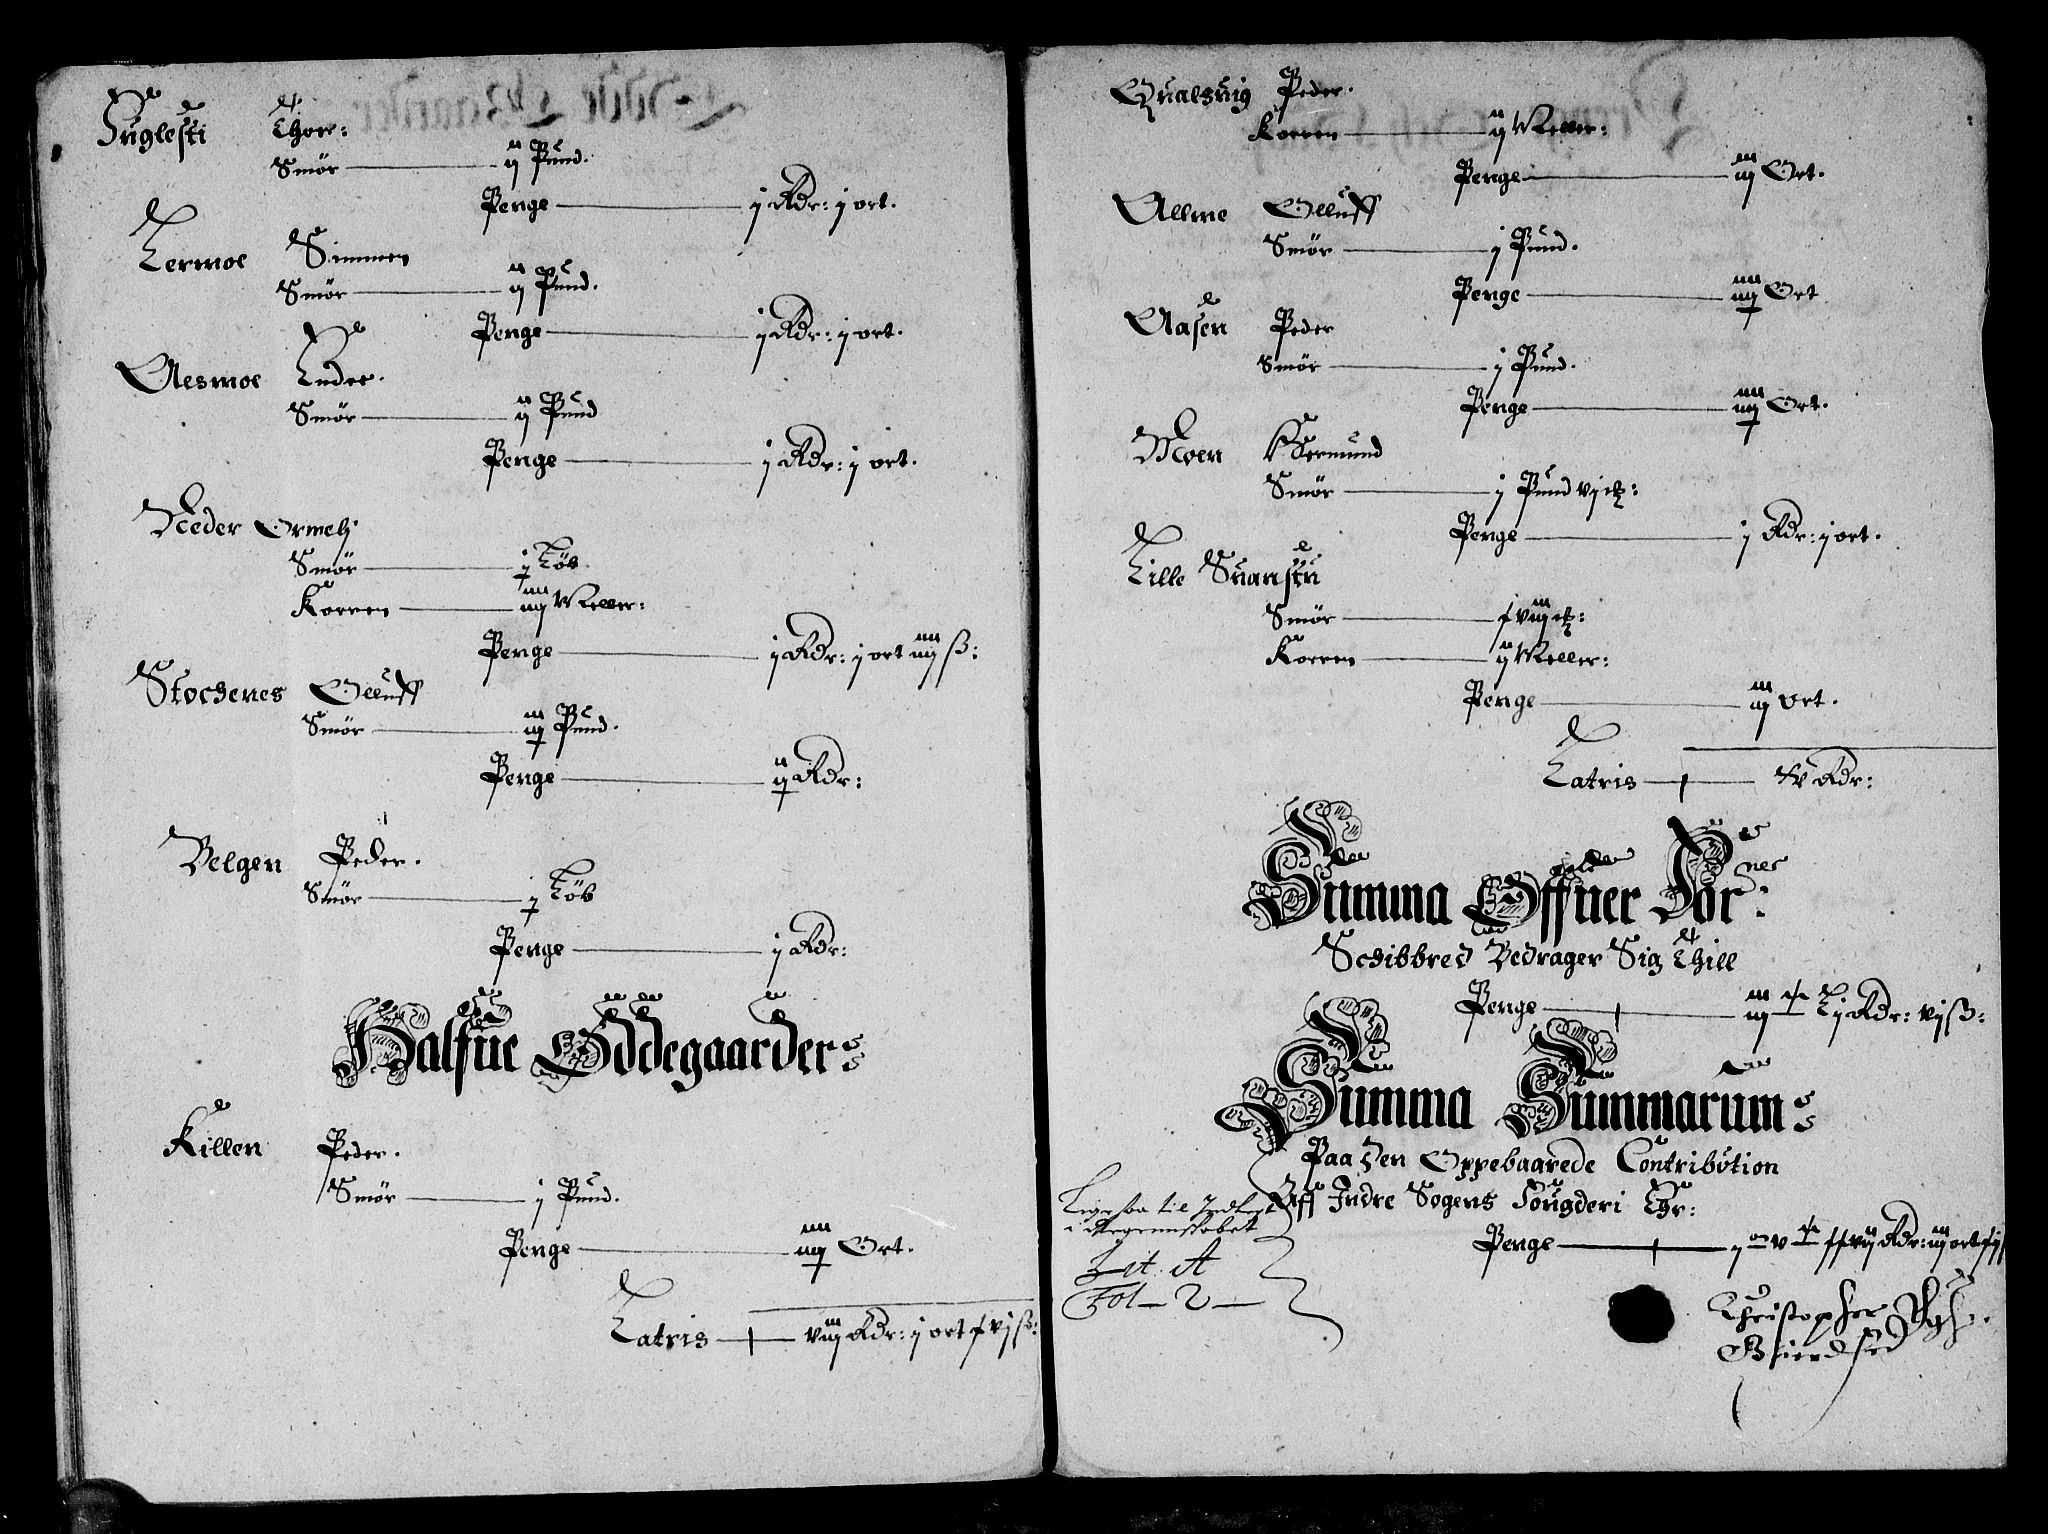 Fuglesti Thore:
Smør ij Pund.
Penge j Rdr: j ort.
Lermoe Simmen
Smør ij Pund.
Penge j Rdr: j ort.
Aesmoe Endre.
Smør ij Pund
Penge j Rdr: j ort.
Neder Ormelj
Smør j Løb.
Korren iiij Meller:
Penge j Rdr: j ort iiij ß:
Stochenes Olluff
Smør iij Pund.
Penge ij Rdr:
Velgen Peder.
Smør j Løb
Penge j Rdr:
Halfue Øddegaarder
Killen Peder.
Smør j Pund.
Penge iiij Ort.
Latris viij Rdr: j ort xvj ß:
Qualsuig Peder.
Korren ij Meller:
Penge iij Ort.
Allme Olluff
Smør j Pund.
Penge iiij Ort
Aasen Peder
Smør j Pund.
Penge iiij Ort.
Moen Wermund
Smør j Pund vj
Penge j Rdr: j ort.
Lille Suanstu
Smør xviij
Korren ij Meller:
Penge iij ort.
Latris Rdr:
Summa Offuer For:nes
Schibbred Bedrager Sig Thill
Penge iij Lj Rdr: vj ß:
Summa Summarum
Paa den Oppebaarede Contribution
Aff Indre Sogens Fougderi Er:
Penge xxvij Rdr: iij ort
Ligesaa til Indtegt
i Regenskabet
Lit. A
Fol 2
Christopher